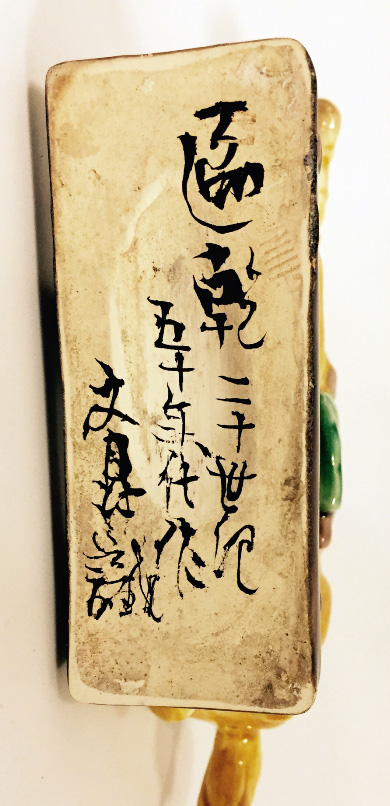 區乾 二十世紀
五十年代作
文 識